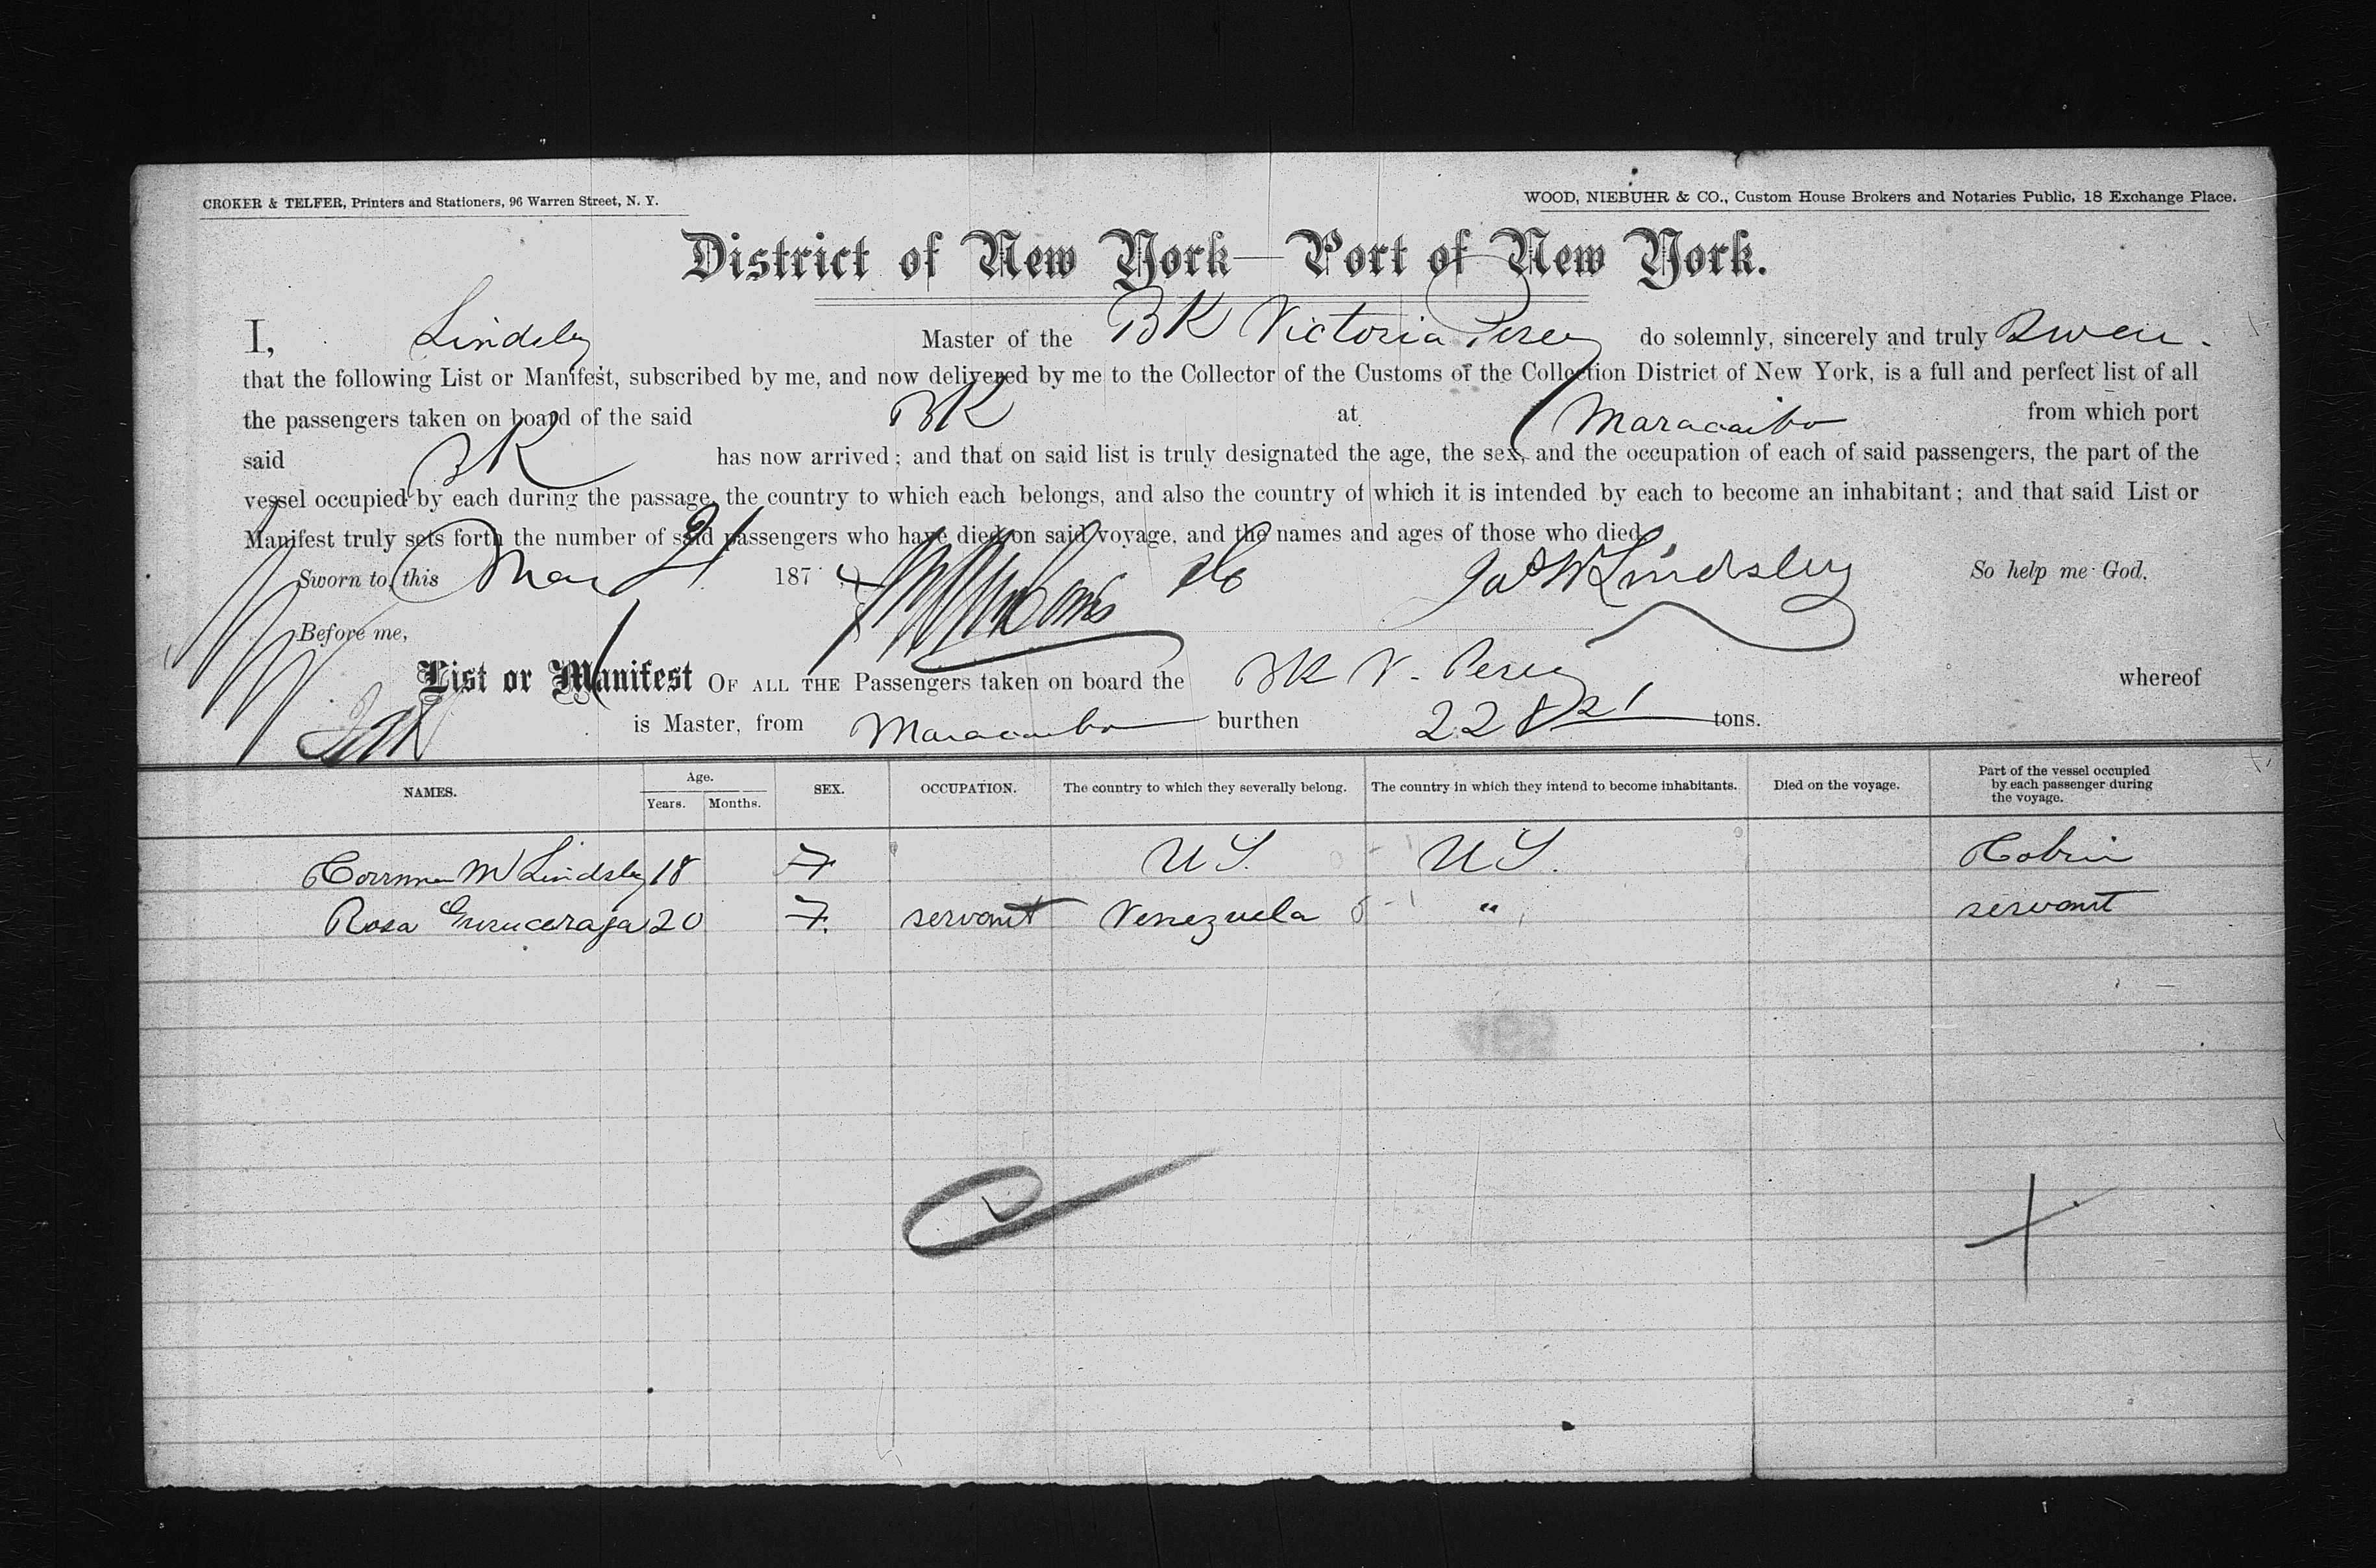 CROKER & TELFER, Printers and Stationers, 96 Warren Street, N. Y.
WOOD, NIEBUHR & CO., Custom House Brokers and Notaries Public, 18 Exchange Place.
District of New York—Port of New York.
I, Lindsley Master of the BK Victoria Perez do solemnly, sincerely and truly Swear.
that the following List or Manifest, subscribed by me, and now delivered by me to the Collector of the Customs of the Collection District of New York, is a full and perfect list of all
the passengers taken on board of the said BK at Maracaibo from which port
said BK has now arrived; and that on said list is truly designated the age, the sex, and the occupation of each of said passengers, the part of the
vessel occupied by each during the passage, the country to which each belongs, and also the country of which it is intended by each to become an inhabitant; and that said List or
Manifest truly sets forth the number of said passengers who have died on said voyage, and the names and ages of those who died.
Sworn to, this Mar 21 187 Jas W Lindsley So help me God.
Before me,
List or Manifest OF ALL THE Passengers taken on board the BK V. Perez whereof
is Master, from Maracaibo burthen 228 21 tons.
NAMES. Age. Years. Months. SEX. OCCUPATION. The country to which they severally belong. The country in which they intend to become inhabitants. Died on the voyage. Part of the vessel occupied by each passenger during the voyage.
M Lindsley 18 F U S. U S. Cabin
Rosa 20 F. servant Venezuela " servant